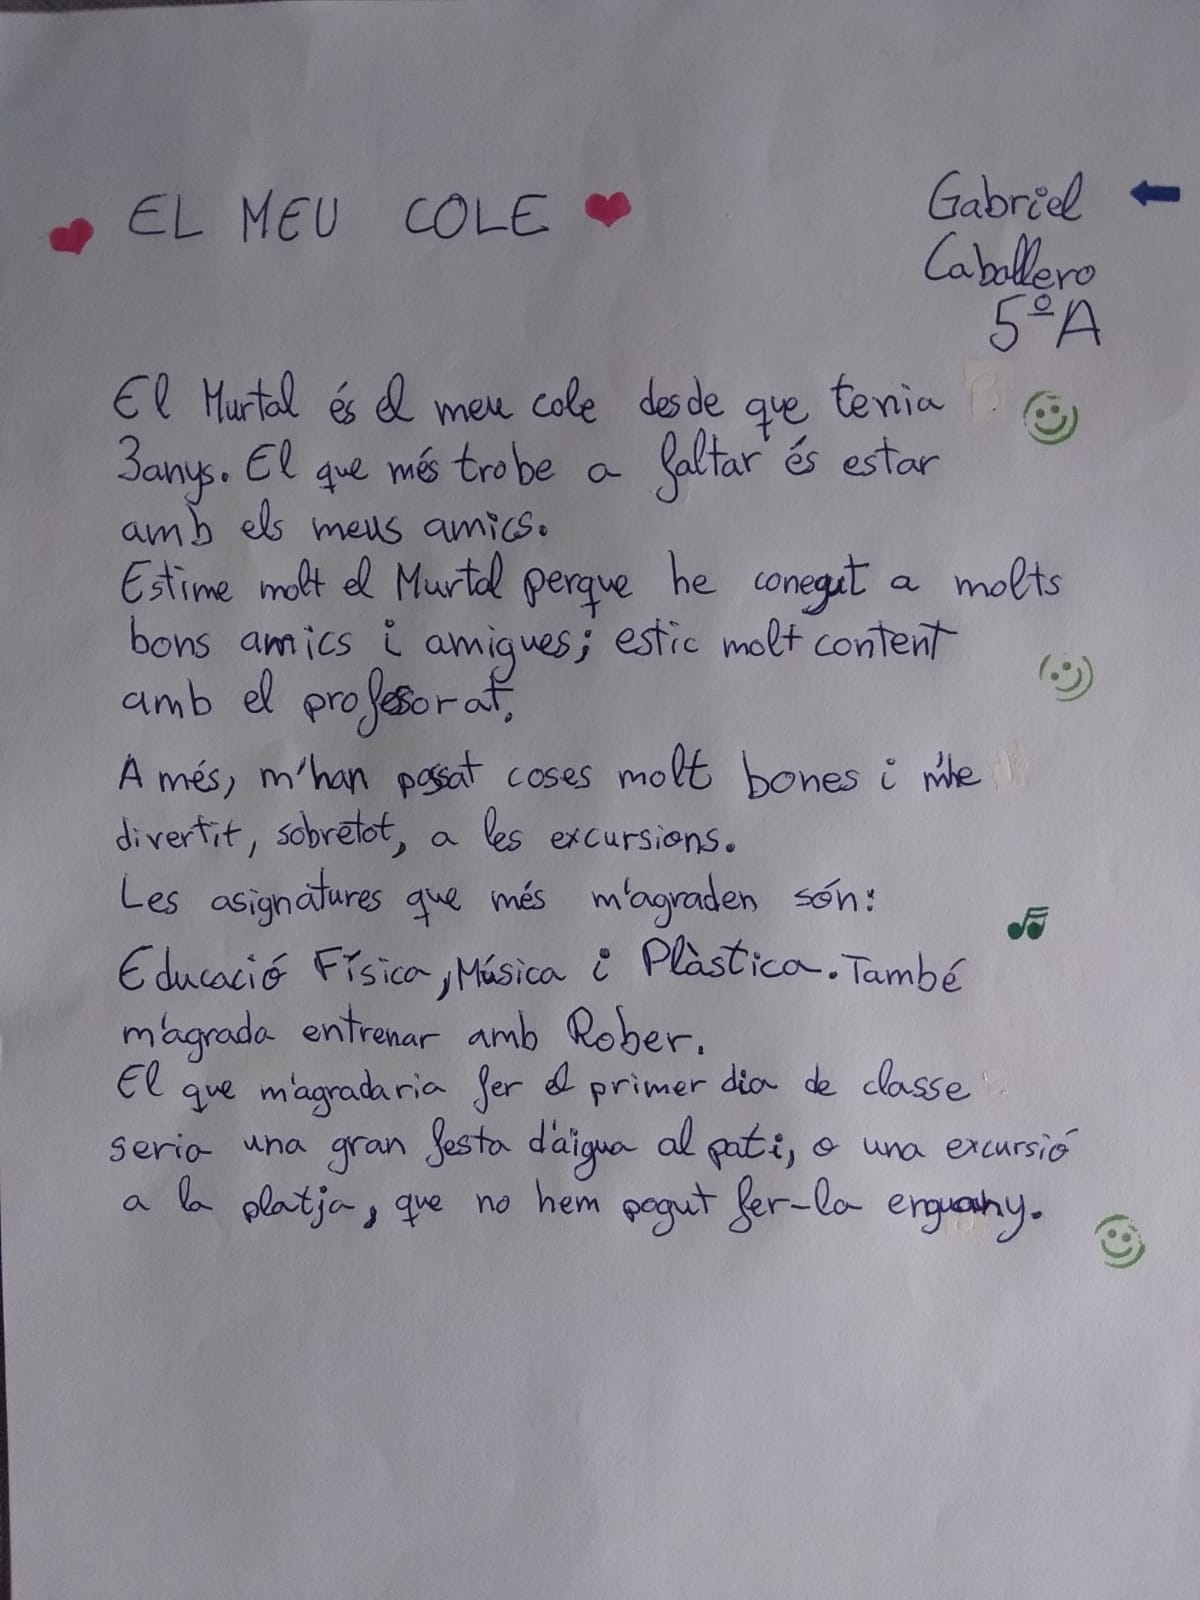 EL MEU COLE
Gabriel
Caballero
5º A
El Murtal és el meu cole desde que tenia
3anys. El que més trobe a faltar és estar
amb els meus amics.
Estime molt el Murtal perque he conegut a molts
bons amics i amigues; estic molt content
amb el profesorat.
A més, m'han passat coses molt bones i m'he
divertit, sobretot, a les excursions.
Les asignatures que més m'agraden són:
Educació Física, Música i Plàstica. També
m'agrada entrenar amb Rober.
El que m'agradaria fer el primer dia de classe
seria una gran festa d'aigua al pati, o una excursió
a la platja, que no hem pogut fer-la enguany.